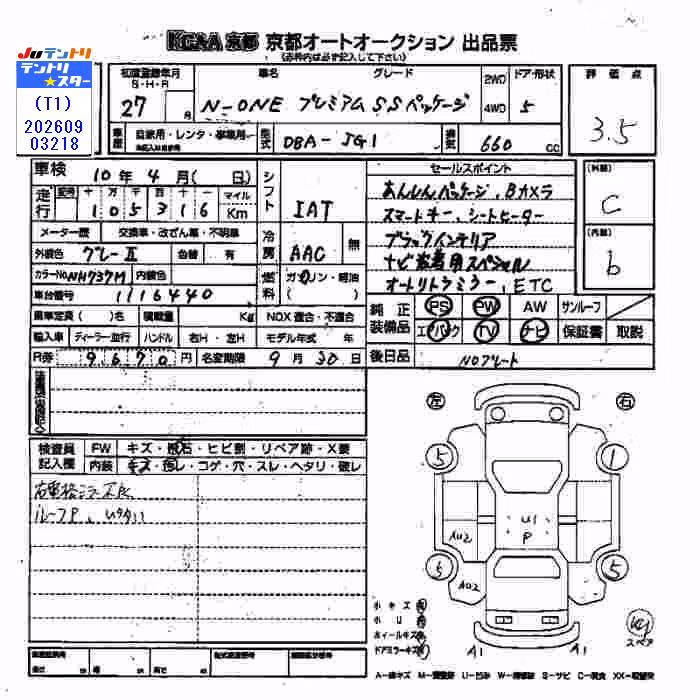 KCAA 京都 京都オートオークション 出品票
(赤枠内は必ず記入して下さい)
JUテントリ
テントリ★スター
(T1)
202609
03218
初度登録年月 車名 グレード ドア・形状 評価点
S・H・R 2WD
27 月 N-ONE プレミアム SSパッケージ 4WD 5
3.5
車歴 自家用・レンタ・事業用 型式 DBA-JG1 排気 660 CC
車検 10年 4月(日) シフト IAT セールスポイント (外装)
走行 十 万 千 百 十 マイル
1 0 5 3 1 6 Km
あんしんパッケージ、Bカメラ
スマートキー、シートヒーター
C
メーター歴 交換車・改ざん車・不明車 冷房 AAC 無
ブラックインテリア
(内装)
外装色 グレーⅡ 色替 有
ナビ装着用スペシャル
b
カラーNo NH737M 内装色 燃料 ガソリン・軽油
オートリトラミラー、ETC
車台番号 1116440
乗車定員( )名 積載量 Kg NOX 適合・不適合
純正装備品 PS PW AW サンルーフ
エアバック TV ナビ 保証書 取説
輸入車 ディーラー・並行 ハンドル 右H・左H モデル年式 年
R券 9 6 7 0 円 名変期限 9月30日 後日品 NOプレート
左 右
検査員記入欄 FW キズ・飛石・ヒビ割・リペア跡・X要
内装 キズ・汚レ・コゲ・穴・スレ・ヘタリ・破レ
右電格ミラー不良
ルーフP、
5 1
U1
P
AU2
5 5
AU2
小キズ 有
ホイールキズ 有
ドアミラーキズ 有
A1 A1
スペア